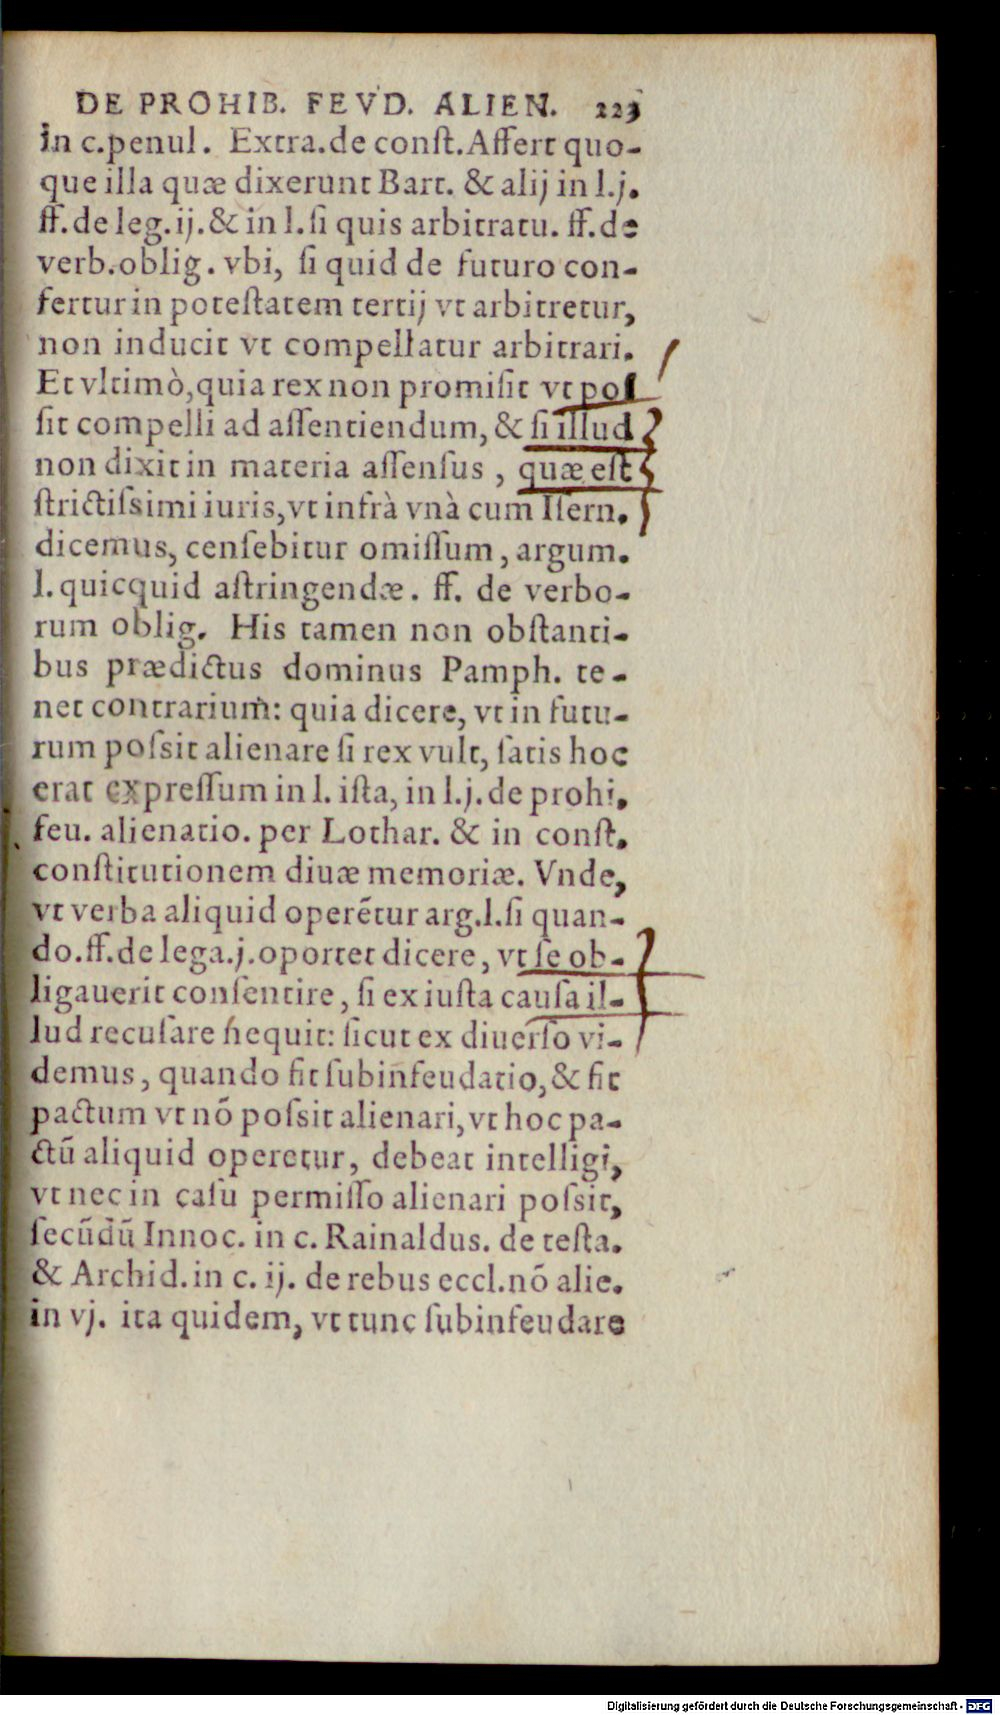 DE PROHIB. FEVD. ALIEN. 223
in c.penul. Extra.de conſt.Aſſert quo-
que illa quæ dixerunt Bart. & alij in l.j.
ff.de leg.ij.& in l.ſi quis arbitratu. ff.de
verb.oblig. vbi, ſi quid de futuro con-
fertur in poteſtatem tertij vt arbitretur,
non inducit vt compellatur arbitrari.
Et vltimò,quia rex non promiſit vt poſ
ſit compelli ad aſſentiendum, & ſi illud
non dixit in materia aſſenſus, quæ eſt
ſtrictiſsimi iuris,vt infrà vnà cum Iſern.
dicemus, cenſebitur omiſſum, argum.
l.quicquid aſtringendæ. ff. de verbo-
rum oblig. His tamen non obſtanti-
bus prædictus dominus Pamph. te-
net contrarium: quia dicere, vt in futu-
rum poſsit alienare ſi rex vult, ſatis hoc
erat expreſſum in l. iſta, in l.j. de prohi.
feu. alienatio. per Lothar. & in conſt.
conſtitutionem diuæ memoriæ. Vnde,
vt verba aliquid operētur arg.l.ſi quan-
do.ff.de lega.j.oportet dicere, vt ſe ob-
ligauerit conſentire, ſi ex iuſta cauſa il-
lud recuſare nequit: ſicut ex diuerſo vi-
demus, quando fit ſubinfeudatio,& fit
pactum vt nō poſsit alienari,vt hoc pa-
ctū aliquid operetur, debeat intelligi,
vt nec in caſu permiſſo alienari poſsit,
ſecūdū Innoc. in c. Rainaldus. de teſta.
& Archid.in c. ij. de rebus eccl.nō alie.
in vj. ita quidem, vt tunc ſubinfeudare
Digitalisierung gefördert durch die Deutsche Forschungsgemeinschaft - DFG